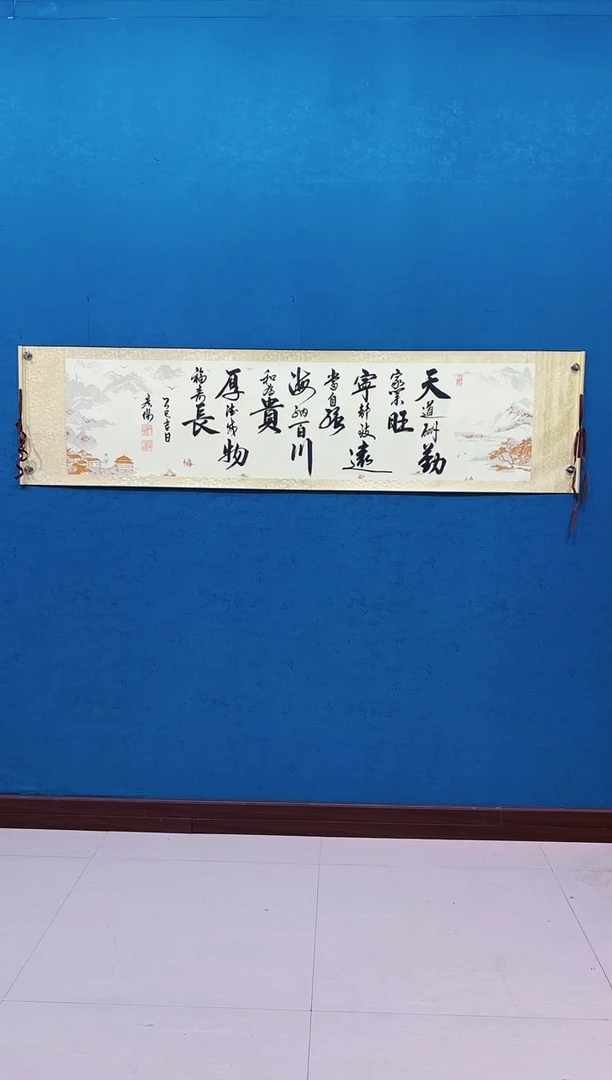 天道酬勤
家業旺
寧靜致遠
當自強
海納百川
和為貴
厚德載物
福壽長
乙巳吉日